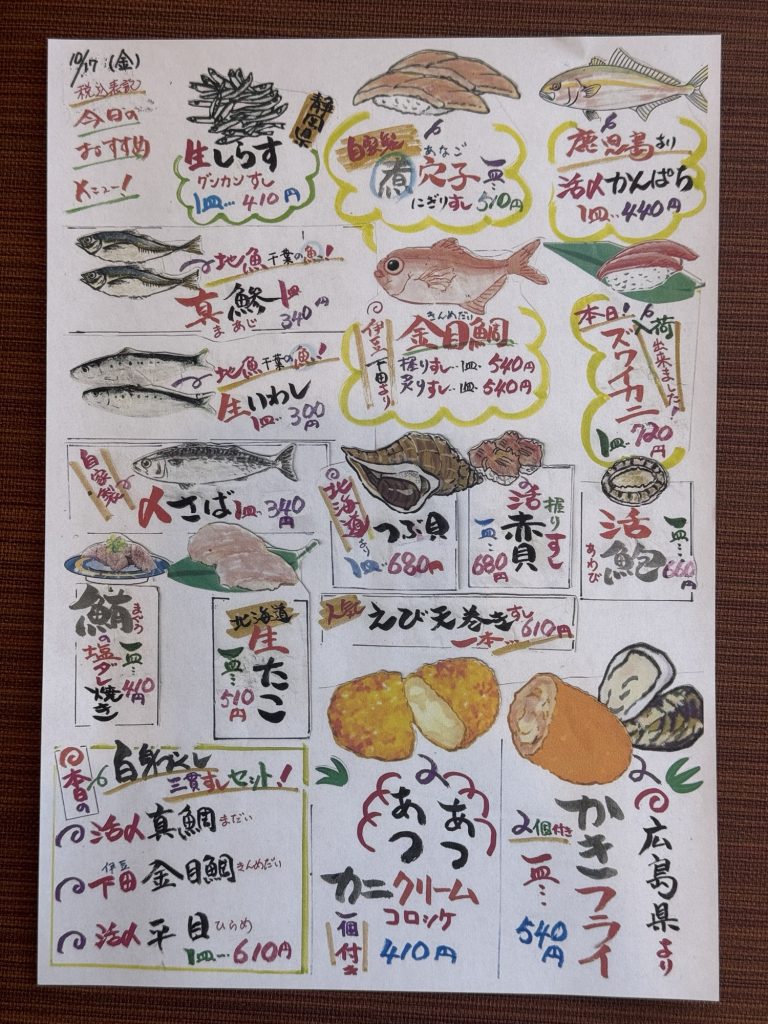 10/17(金)
税込表記
今日の
おすすめ
メニュー!
静岡県
生しらす
グンカンすし
1皿… 410円
自家製
あなご
煮穴子
にぎりすし
一皿… 510円
鹿児島より
活〆かんぱち
1皿… 440円
地魚千葉の魚!
真鯵
まあじ
1皿 340円
地魚千葉の魚!
生いわし
1皿… 300円
伊豆下田より
きんめだい
金目鯛
握りすし…1皿… 540円
炙りすし…1皿… 540円
本日!
入荷出来ました!
ズワイカニ
1皿… 720円
自家製
〆さば 1皿… 340円
北海道より
つぶ貝
1皿… 680円
活赤貝
握りすし
一皿… 680円
活鮑
あわび
一皿… 660円
鮪の塩ダレ焼き
まぐろ
一皿… 410円
北海道
生たこ
一皿… 510円
人気
えび天巻きすし
一本… 610円
本日の
白身づくし
三貫すしセット!
活〆真鯛まだい
伊豆
下田 金目鯛きんめだい
活〆 平目ひらめ
1皿… 610円
あつあつ
カニクリーム
コロッケ
一個付き
410円
広島県より
かきフライ
2個付き
一皿… 540円